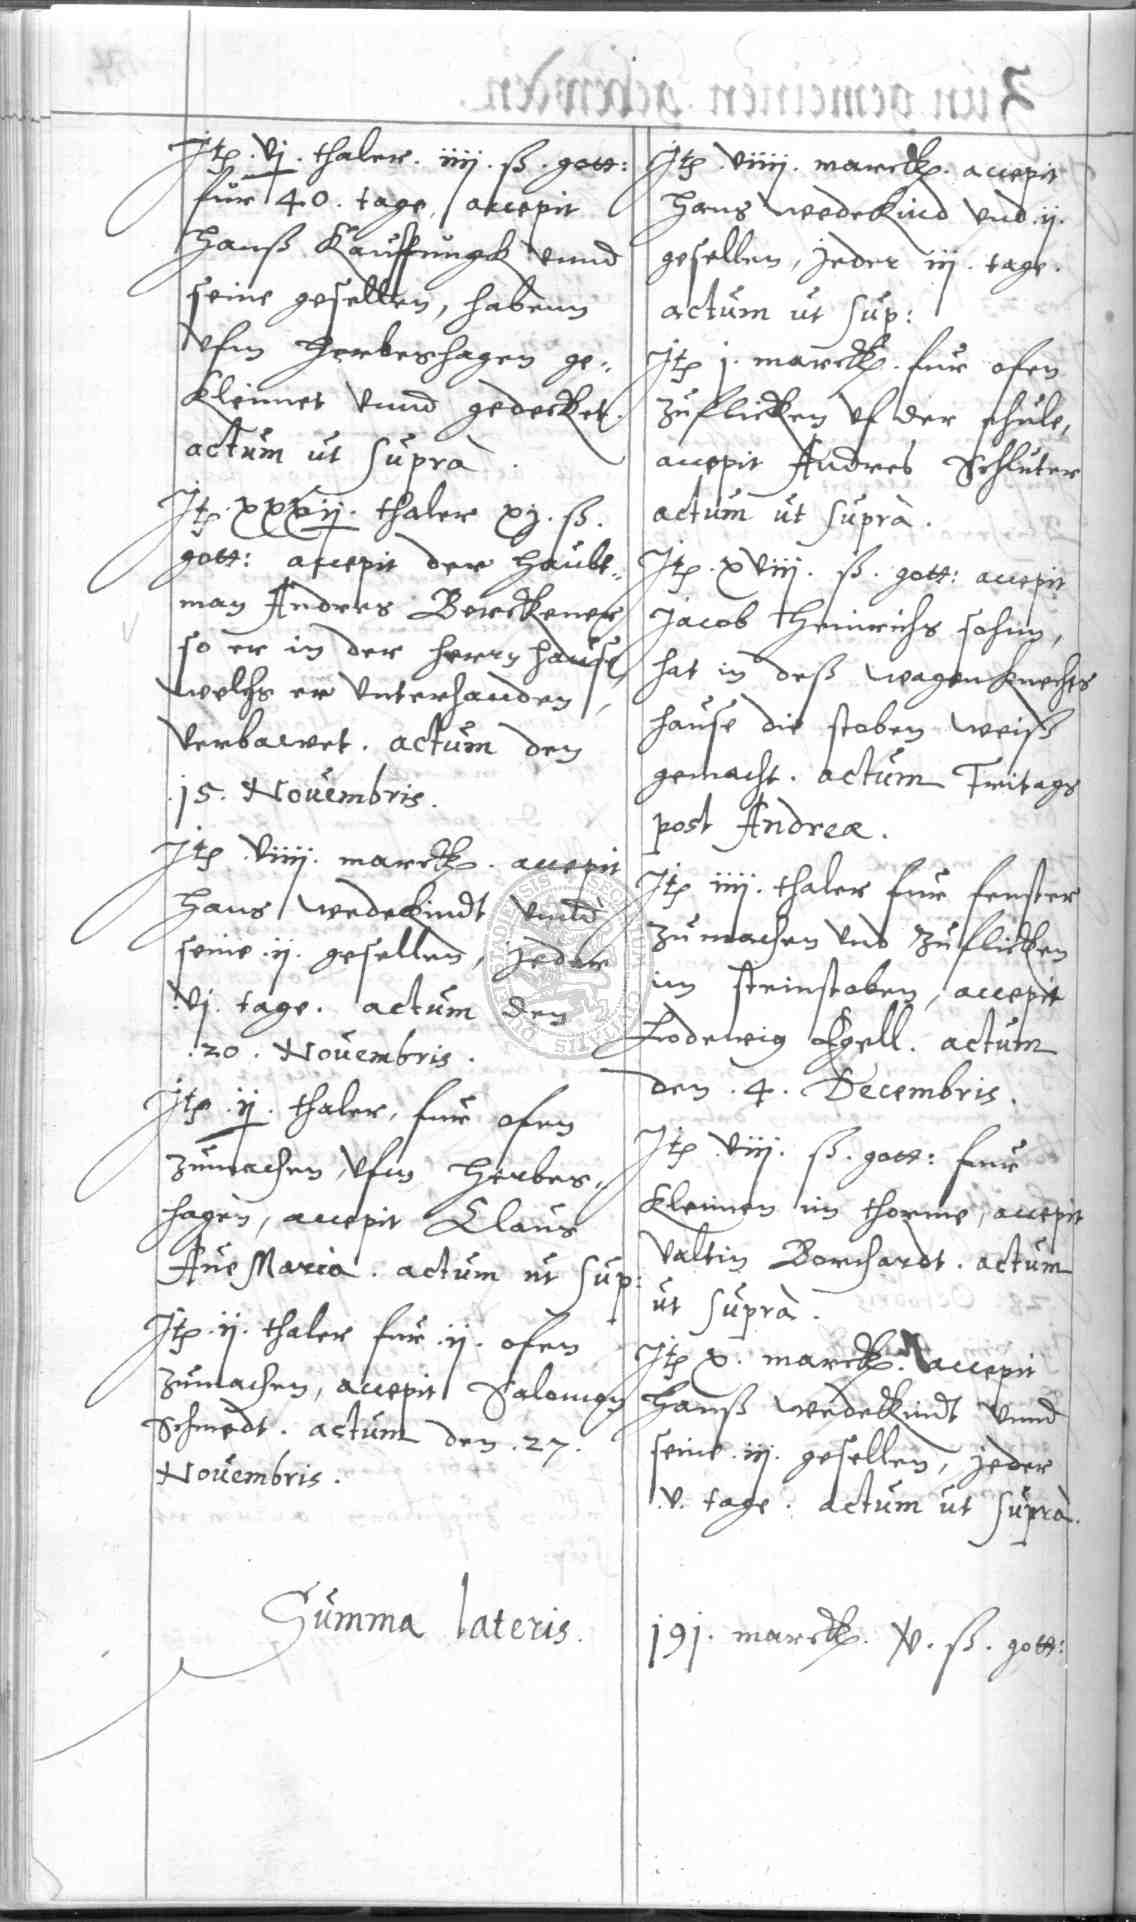 Jtz .vj. thaler. iiij. ß. gott:
fur 40. tage, accepit
Hanß Kauffungk vnnd
seine gesellen, habenn
vfm Herbershagen ge„
kleimet vnnd gedecket.
actum ut supra.
Jtz xxxvij. thaler xj. ß.
gott: accepit der Haubt„
man Andres Berckener,
so er in der herrn hause,
welchs er vnterhanden,
verbawet. actum den
15. Novembris.
Jtz viiij. marck. accepit
Hans Wedekindt vnnd
seine .ij. gesellen, jeder
.vj. tage. actum den
.20. Novembris.
Jtz .ij. thaler, fur ofen
zumachen, vfm Herbes„
hagen, accepit Claus
Aue Maria. actum ut sup:
Jtz .ij. thaler fur .ij. ofen
zumachen, accepit Salomon
Schmedt. actum den .27.
Novembris.
Jtz viiij. marck. accepit
Hans Wedekind vnd .ij.
gesellen, jeder iij. tage.
actum ut sup:
Jtz j. marck. fur ofen
zuflicken vf der schule,
accepit Andres Schluter
actum ut supra.
Jtz .xviij. ß. gott: accepit
Jacob Heinrichs sohnn,
hat in deß wagenknechts
hause die stoben weiß
gemacht. actum Freitags
post Andreæ.
Jtz iiij. thaler fur fenster
zumachen vnd zuflicken
im steinstoben, accepit
Lodewig Egell. actum
den .4. Decembris.
Jtz viij. ß. gott: fur
kleimen im thorme, accepit
Valtin Borchardt. actum
ut supra.
Jtz x. marck. accepit
Hanß Wedekindt vnnd
seine .iij. gesellen, jeder
.v. tage. actum ut supra.
Summa lateris. 191. marck. xv. ß. gott: